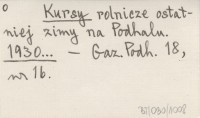 o
Kursy rolnicze ostat-
niej zimy na Podhalu.
1930... — Gaz. Podh. 18,
nr 16.